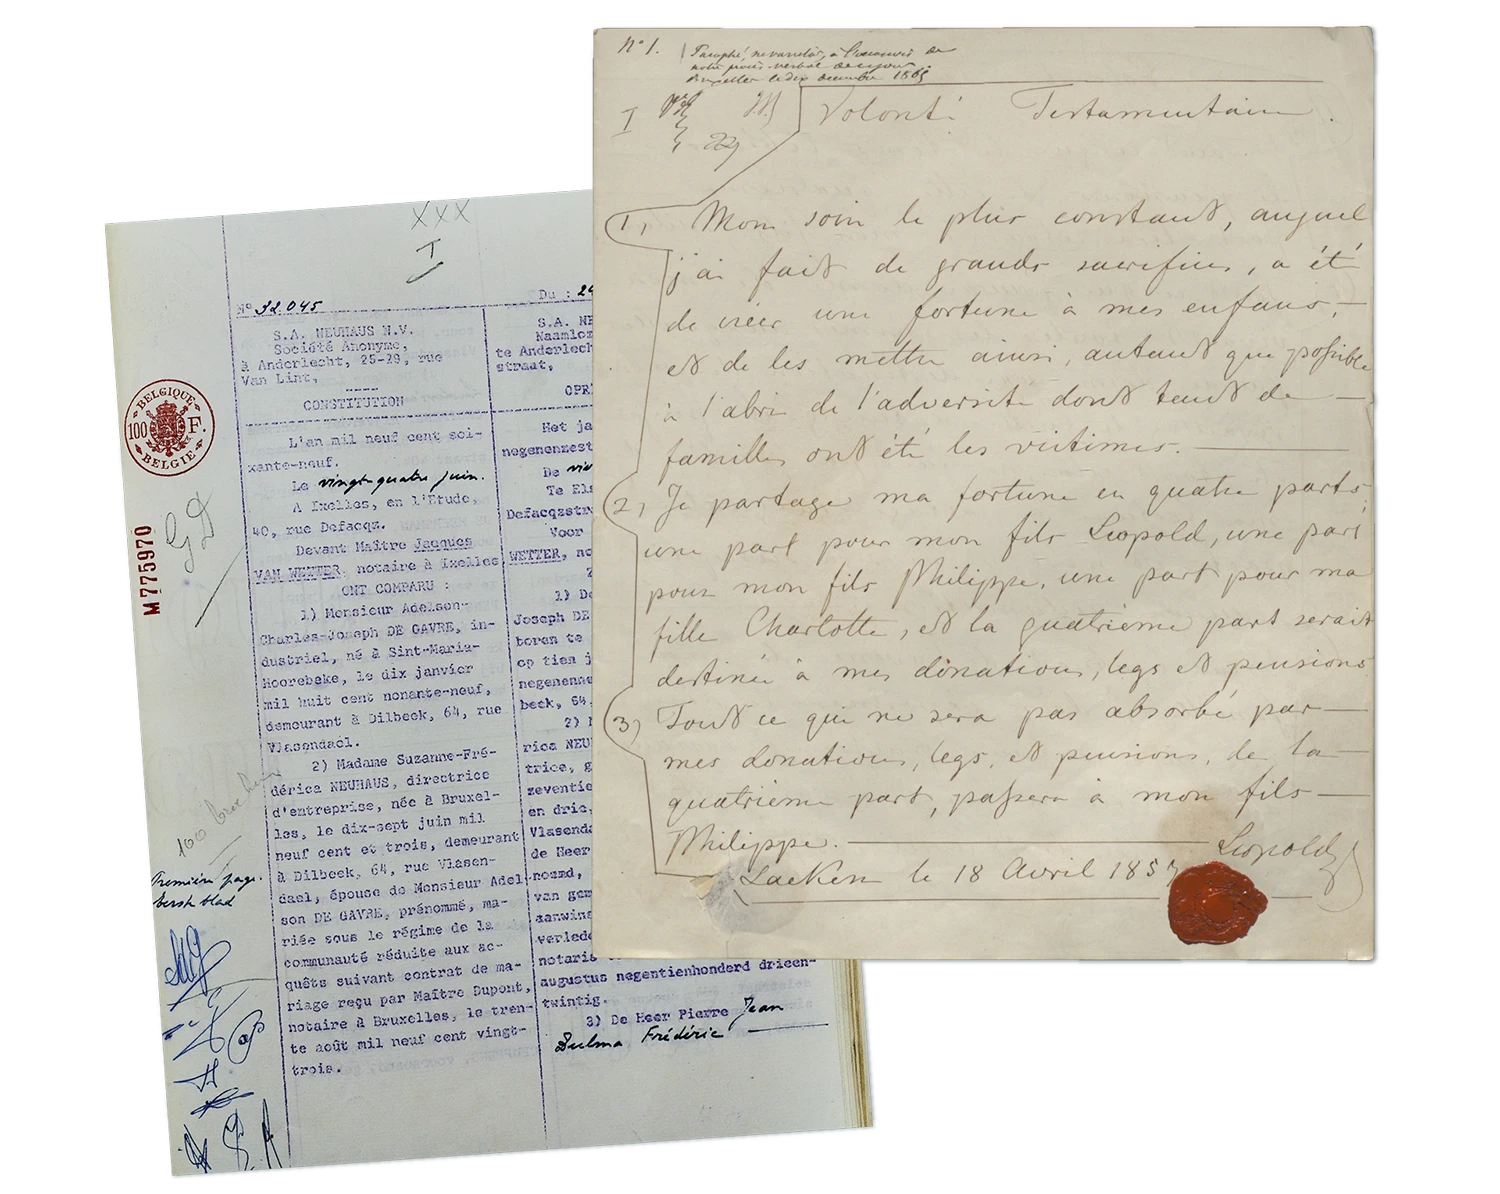 N° 1.
Paraphé, ne varietur, à l'annexe de
notre procès-verbal de ce jour.
Bruxelles le dix décembre 1865
I
Volonté Testamentaire.
1, Mon soin le plus constant, auquel
j'ai fait de grands sacrifices, a été
de créer une fortune à mes enfans,
et de les mettre ainsi, autant que possible
à l'abri de l'adversité dont tant de
familles ont été les victimes.
2, Je partage ma fortune en quatre parts,
une part pour mon fils Léopold, une part
pour mon fils Philippe, une part pour ma
fille Charlotte, et la quatrième part serait
destinée à mes donations, legs et pensions
3, Tout ce qui ne sera pas absorbé par
mes donations, legs, et pensions, de la
quatrième part, passera à mon fils
Philippe.
Leopold
Laeken le 18 Avril 1857
XXX
I
N° 32.045
S.A. NEUHAUS N.V.
Société Anonyme,
à Anderlecht, 25-29, rue
Van Lint,
CONSTITUTION
L'an mil neuf cent soi-
xante-neuf.
Le vingt-quatre juin.
A Ixelles, en l'Etude,
40, rue Defacqz.
Devant Maître Jacques
VAN WETTER, notaire à Ixelles
ONT COMPARU :
1) Monsieur Adelson-
Charles-Joseph DE GAVRE, in-
dustriel, né à Sint-Maria-
Hoorebeke, le dix janvier
mil huit cent nonante-neuf,
demeurant à Dilbeek, 64, rue
Vlasendael.
2) Madame Suzanne-Fré-
dérica NEUHAUS, directrice
d'entreprise, née à Bruxel-
les, le dix-sept juin mil
neuf cent et trois, demeurant
à Dilbeek, 64, rue Vlasen-
dael, épouse de Monsieur Adel
son DE GAVRE, prénommé, ma-
riée sous le régime de la
communauté réduite aux ac-
quêts suivant contrat de ma-
riage reçu par Maître Dupont,
notaire à Bruxelles, le tren-
te août mil neuf cent vingt-
trois.
Du : 24
S.A. NE
Naamloz
te Anderlech
straat,
OPRI
Het ja
negenenzest
De vie
Te Els
Defacqzstr
Voor
WETTER, no
1) De
Joseph DE
boren te
op tien j
negenenne
beek, 64,
2) M
rica NEU
trice, g
zeventie
en drie,
Vlasenda
de Heer
noemd,
van gem
aanwins
verlede
notaris
augustus negentienhonderd drieën-
twintig.
3) De Heer Pierre Jean
Dulma Frédéric
BELGIQUE
100 F.
BELGIE
M775970
GD
Première page.
Eerste blad